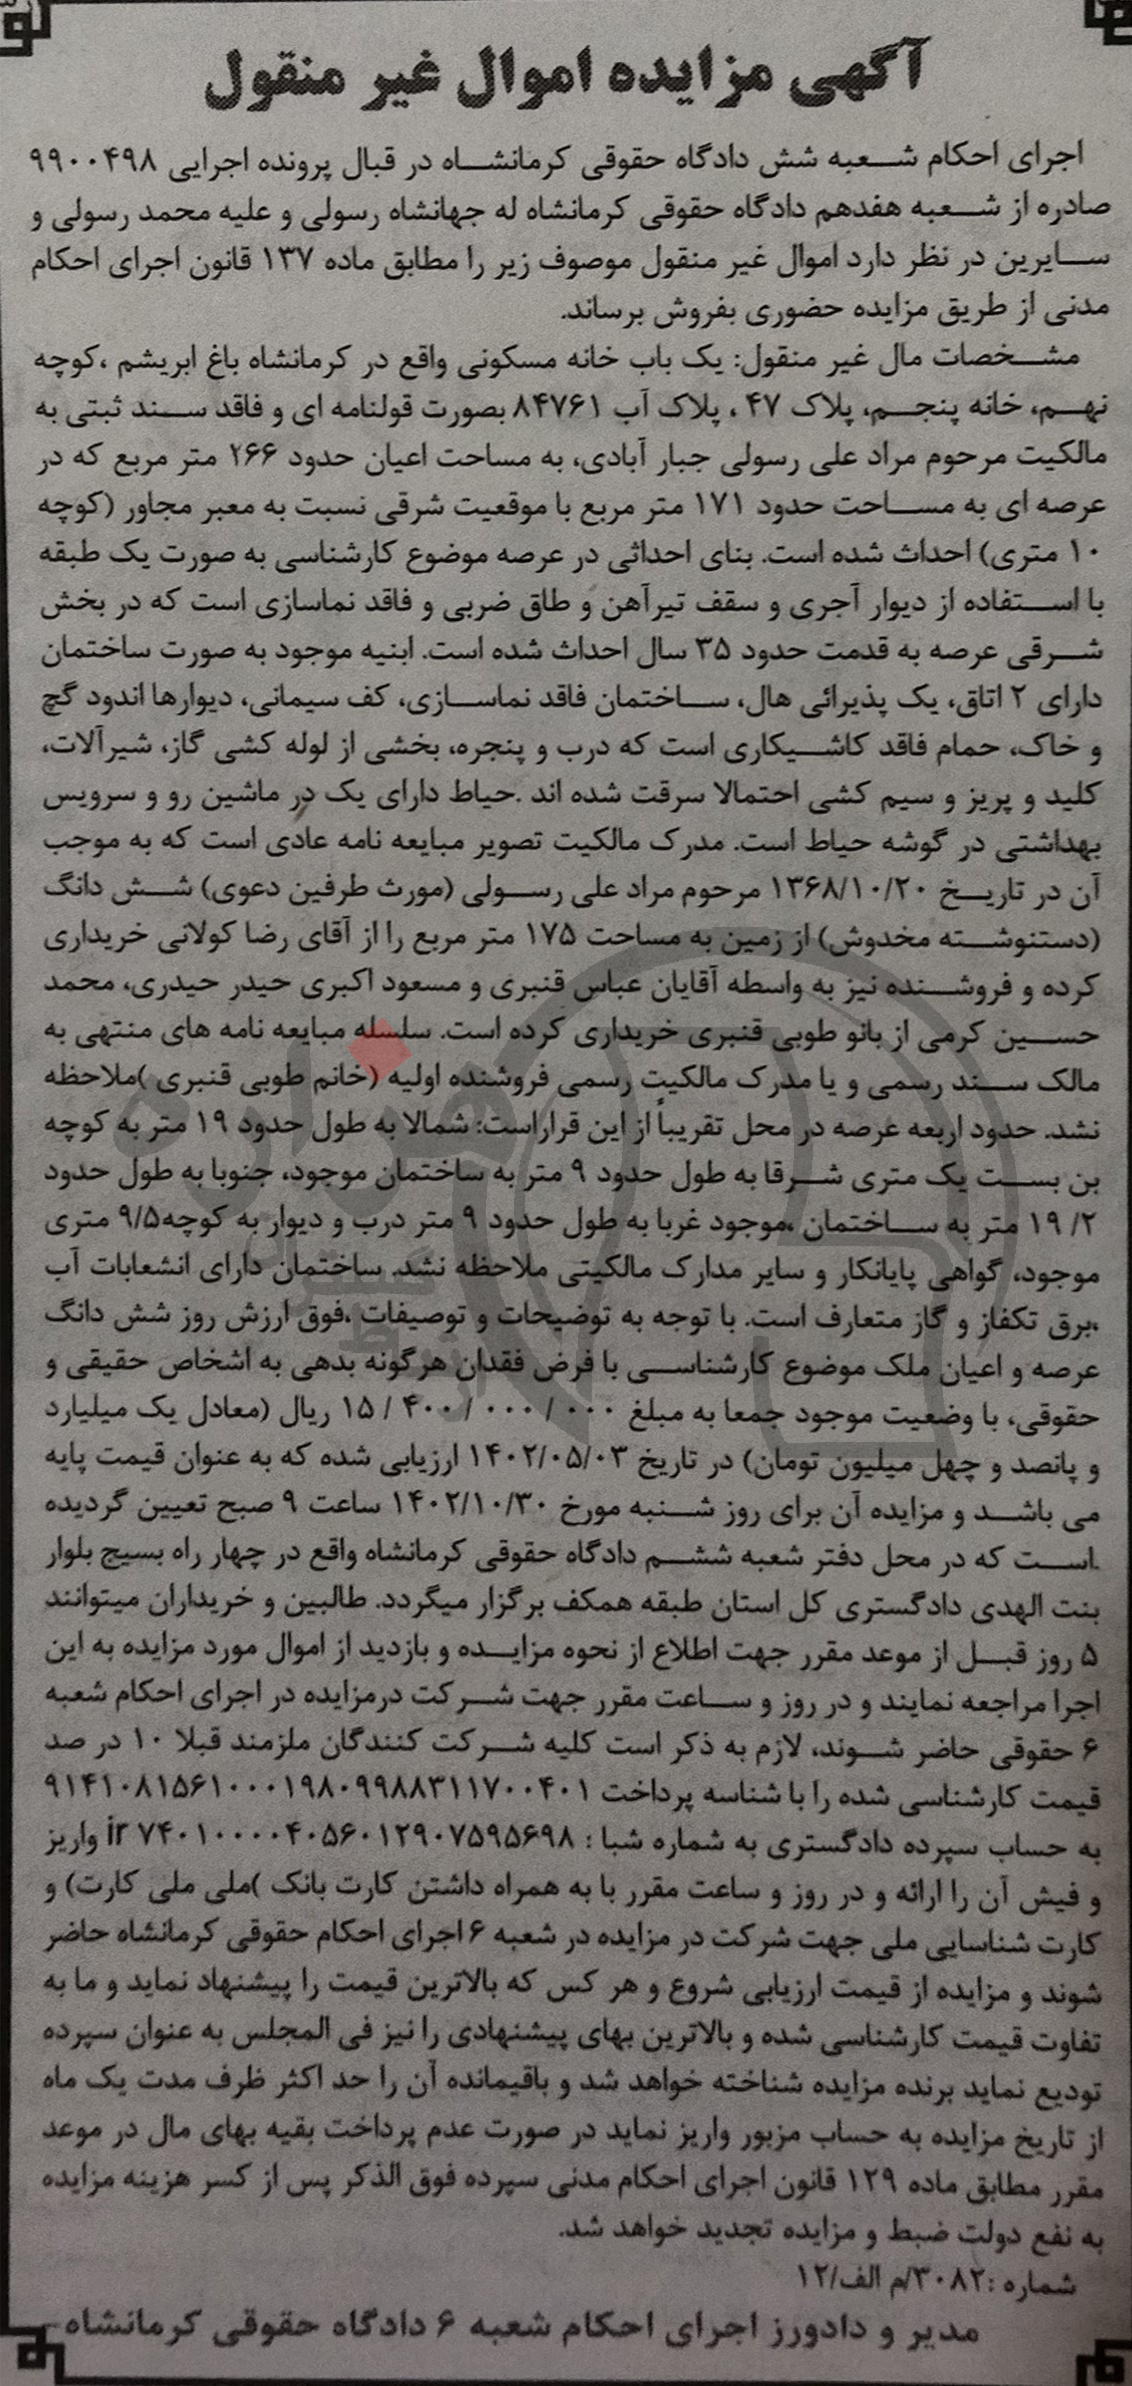 آگهی مزایده اموال غیر منقول
اجرای احکام شعبه شش دادگاه حقوقی کرمانشاه در قبال پرونده اجرایی ۹۹۰۰۴۹۸
صادره از شعبه هفدهم دادگاه حقوقی کرمانشاه له جهانشاه رسولی و علیه محمد رسولی و
سایرین در نظر دارد اموال غیر منقول موصوف زیر را مطابق ماده ۱۳۷ قانون اجرای احکام
مدنی از طریق مزایده حضوری بفروش برساند.
مشخصات مال غیر منقول: یک باب خانه مسکونی واقع در کرمانشاه باغ ابریشم ،کوچه
نهم، خانه پنجم، پلاک ۴۷ ، پلاک آب ۸۴۷۶۱ بصورت قولنامه ای و فاقد سند ثبتی به
مالکیت مرحوم مراد علی رسولی جبار آبادی، به مساحت اعیان حدود ۲۶۶ متر مربع که در
عرصه ای به مساحت حدود ۱۷۱ متر مربع با موقعیت شرقی نسبت به معبر مجاور (کوچه
۱۰ متری) احداث شده است. بنای احداثی در عرصه موضوع کارشناسی به صورت یک طبقه
با استفاده از دیوار آجری و سقف تیرآهن و طاق ضربی و فاقد نماسازی است که در بخش
شرقی عرصه به قدمت حدود ۳۵ سال احداث شده است. ابنیه موجود به صورت ساختمان
دارای ۲ اتاق، یک پذیرائی هال، ساختمان فاقد نماسازی، کف سیمانی، دیوارها اندود گچ
و خاک، حمام فاقد کاشیکاری است که درب و پنجره، بخشی از لوله کشی گاز، شیرآلات،
کلید و پریز و سیم کشی احتمالا سرقت شده اند .حیاط دارای یک در ماشین رو و سرویس
بهداشتی در گوشه حیاط است. مدرک مالکیت تصویر مبایعه نامه عادی است که به موجب
آن در تاریخ ۱۳۶۸/۱۰/۲۰ مرحوم مراد علی رسولی (مورث طرفین دعوی) شش دانگ
(دستنوشته مخدوش) از زمین به مساحت ۱۷۵ متر مربع را از آقای رضا کولانی خریداری
کرده و فروشنده نیز به واسطه آقایان عباس قنبری و مسعود اکبری حیدر حیدری، محمد
حسین کرمی از بانو طوبی قنبری خریداری کرده است. سلسله مبایعه نامه های منتهی به
مالک سند رسمی و یا مدرک مالکیت رسمی فروشنده اولیه (خانم طوبی قنبری )ملاحظه
نشد. حدود اربعه عرصه در محل تقریباً از این قراراست: شمالا به طول حدود ۱۹ متر به کوچه
بن بست یک متری شرقا به طول حدود ۹ متر به ساختمان موجود، جنوبا به طول حدود
۲/ ۱۹ متر به ساختمان ،موجود غربا به طول حدود ۹ متر درب و دیوار به کوچه۹/۵ متری
موجود، گواهی پایانکار و سایر مدارک مالکیتی ملاحظه نشد. ساختمان دارای انشعابات آب
،برق تکفاز و گاز متعارف است. با توجه به توضیحات و توصیفات ،فوق ارزش روز شش دانگ
عرصه و اعیان ملک موضوع کارشناسی با فرض فقدان هرگونه بدهی به اشخاص حقیقی و
حقوقی، با وضعیت موجود جمعا به مبلغ ۰۰۰ / ۰۰۰ / ۴۰۰ / ۱۵ ریال (معادل یک میلیارد
و پانصد و چهل میلیون تومان) در تاریخ ۱۴۰۲/۰۵/۰۳ ارزیابی شده که به عنوان قیمت پایه
می باشد و مزایده آن برای روز شنبه مورخ ۱۴۰۲/۱۰/۳۰ ساعت ۹ صبح تعیین گردیده
.است که در محل دفتر شعبه ششم دادگاه حقوقی کرمانشاه واقع در چهار راه بسیج بلوار
بنت الهدی دادگستری کل استان طبقه همکف برگزار میگردد. طالبین و خریداران میتوانند
۵ روز قبل از موعد مقرر جهت اطلاع از نحوه مزایده و بازدید از اموال مورد مزایده به این
اجرا مراجعه نمایند و در روز و ساعت مقرر جهت شرکت درمزایده در اجرای احکام شعبه
۶ حقوقی حاضر شوند، لازم به ذکر است کلیه شرکت کنندگان ملزمند قبلا ۱۰ در صد
قیمت کارشناسی شده را با شناسه پرداخت ۹۱۴۱۰۸۱۵۶۱۰۰۰۱۹۸۰۹۹۸۸۳۱۱۷۰۰۴۰۱
به حساب سپرده دادگستری به شماره شبا : ir ۷۴۰۱۰۰۰۰۴۰۵۶۰۱۲۹۰۷۵۹۵۶۹۸ واریز
و فیش آن را ارائه و در روز و ساعت مقرر با به همراه داشتن کارت بانک )ملی ملی کارت) و
کارت شناسایی ملی جهت شرکت در مزایده در شعبه ۶ اجرای احکام حقوقی کرمانشاه حاضر
شوند و مزایده از قیمت ارزیابی شروع و هر کس که بالاترین قیمت را پیشنهاد نماید و ما به
تفاوت قیمت کارشناسی شده و بالاترین بهای پیشنهادی را نیز فی المجلس به عنوان سپرده
تودیع نماید برنده مزایده شناخته خواهد شد و باقیمانده آن را حد اکثر ظرف مدت یک ماه
از تاریخ مزایده به حساب مزبور واریز نماید در صورت عدم پرداخت بقیه بهای مال در موعد
مقرر مطابق ماده ۱۲۹ قانون اجرای احکام مدنی سپرده فوق الذکر پس از کسر هزینه مزایده
به نفع دولت ضبط و مزایده تجدید خواهد شد.
شماره :۳۰۸۲/م الف/۱۲
مدیر و دادورز اجرای احکام شعبه ۶ دادگاه حقوقی کرمانشاه